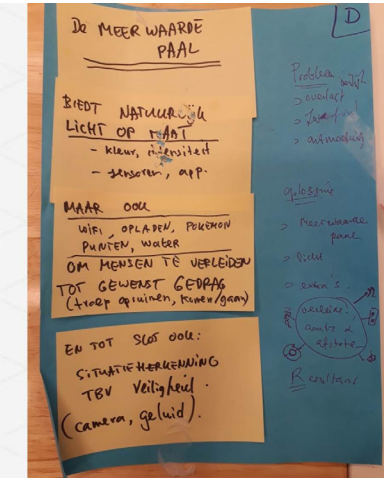 D
De MEERWAARDE
PAAL
BIEDT NATUURlijk
LICHT OP MAAT
- kleur, intensiteit
- sensoren, app.
MAAR OOK
WiFi, OPLADEN, POKEMON
PUNTEN, WATER
OM MENSEN TE VERLEIDEN
TOT GEWENST GEDRAG
(troep opruimen, komen/gaan)
EN TOT SLOT OOK:
SITUATIEHERKENNING
TBV Veiligheid.
(camera, geluid).
Probleem
> overlast
oplossing
> Meerwaarde
paal
> licht
> extra's.
verleiden
Resultaat